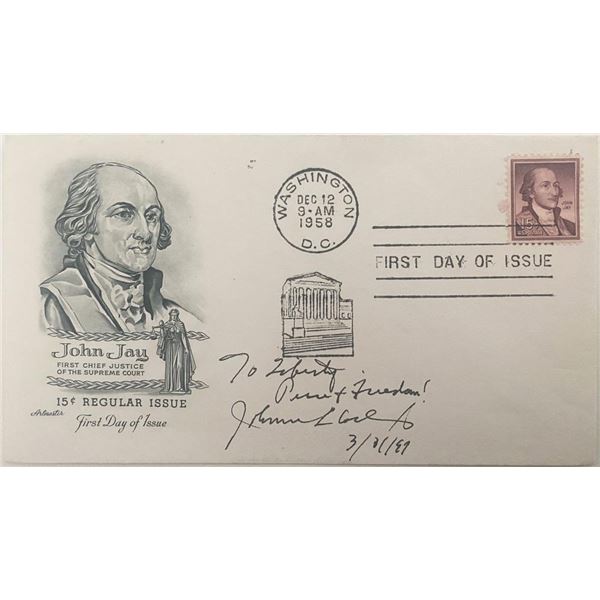 John Jay
FIRST CHIEF JUSTICE
OF THE SUPREME COURT
15¢ REGULAR ISSUE
Artmaster
First Day of Issue
WASHINGTON
DEC 12
9-AM
1958
D.C.
JOHN
JAY
15¢
FIRST DAY OF ISSUE
To Liberty
Peace & Freedom!
Johnnie L Coch